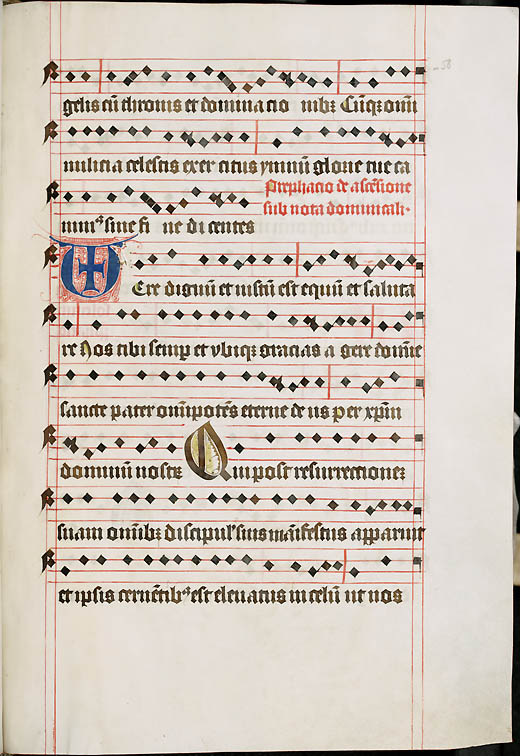 58
gelis cū thronis et dominacionibꝫ Cūqꝫ omni
militia celestis exercitus ymnum glorie tue ca
Prephacio de ascēsione
sub nota dominicali.
nimꝰ sine fine dicentes
Vere dignum et iustū est equū et saluta
re Nos tibi semꝑ et vbiqꝫ gracias agere domine
sancte pater omnipotēs eterne deus per xp̄m
dominum nostrꝫ Qui post resurrectioneꝫ
suam omnibꝫ discipulꝭ suis manifestus apparuit
et ipsis cernētibꝰ est eleuatus in celū ut nos